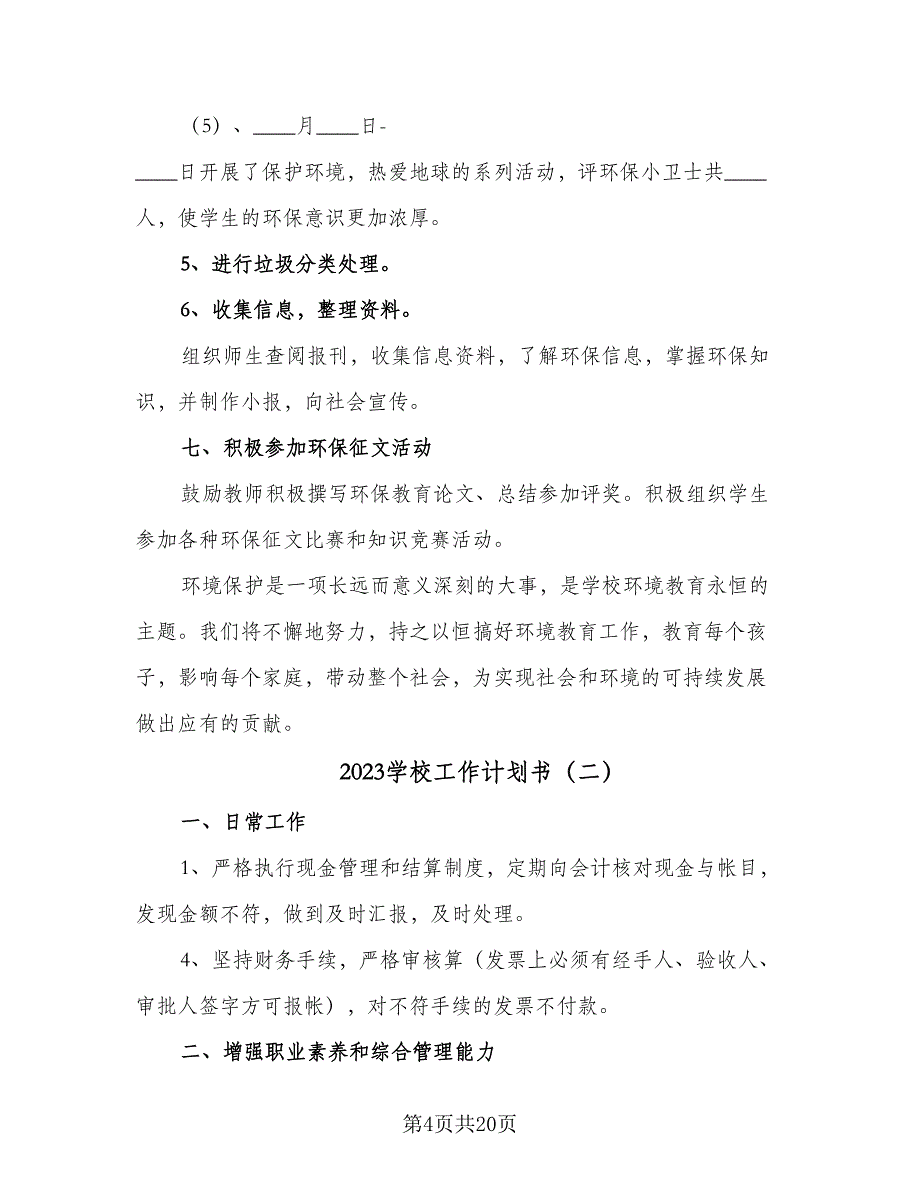 （5）、____月____日-
____日开展了保护环境，热爱地球的系列活动，评环保小卫士共____
人，使学生的环保意识更加浓厚。
5、进行垃圾分类处理。
6、收集信息，整理资料。
组织师生查阅报刊，收集信息资料，了解环保信息，掌握环保知
识，并制作小报，向社会宣传。
七、积极参加环保征文活动
鼓励教师积极撰写环保教育论文、总结参加评奖。积极组织学生
参加各种环保征文比赛和知识竞赛活动。
环境保护是一项长远而意义深刻的大事，是学校环境教育永恒的
主题。我们将不懈地努力，持之以恒搞好环境教育工作，教育每个孩
子，影响每个家庭，带动整个社会，为实现社会和环境的可持续发展
做出应有的贡献。
2023学校工作计划书（二）
一、日常工作
1、严格执行现金管理和结算制度，定期向会计核对现金与帐目，
发现金额不符，做到及时汇报，及时处理。
4、坚持财务手续，严格审核算（发票上必须有经手人、验收人、
审批人签字方可报帐），对不符手续的发票不付款。
二、增强职业素养和综合管理能力
第4页共20页